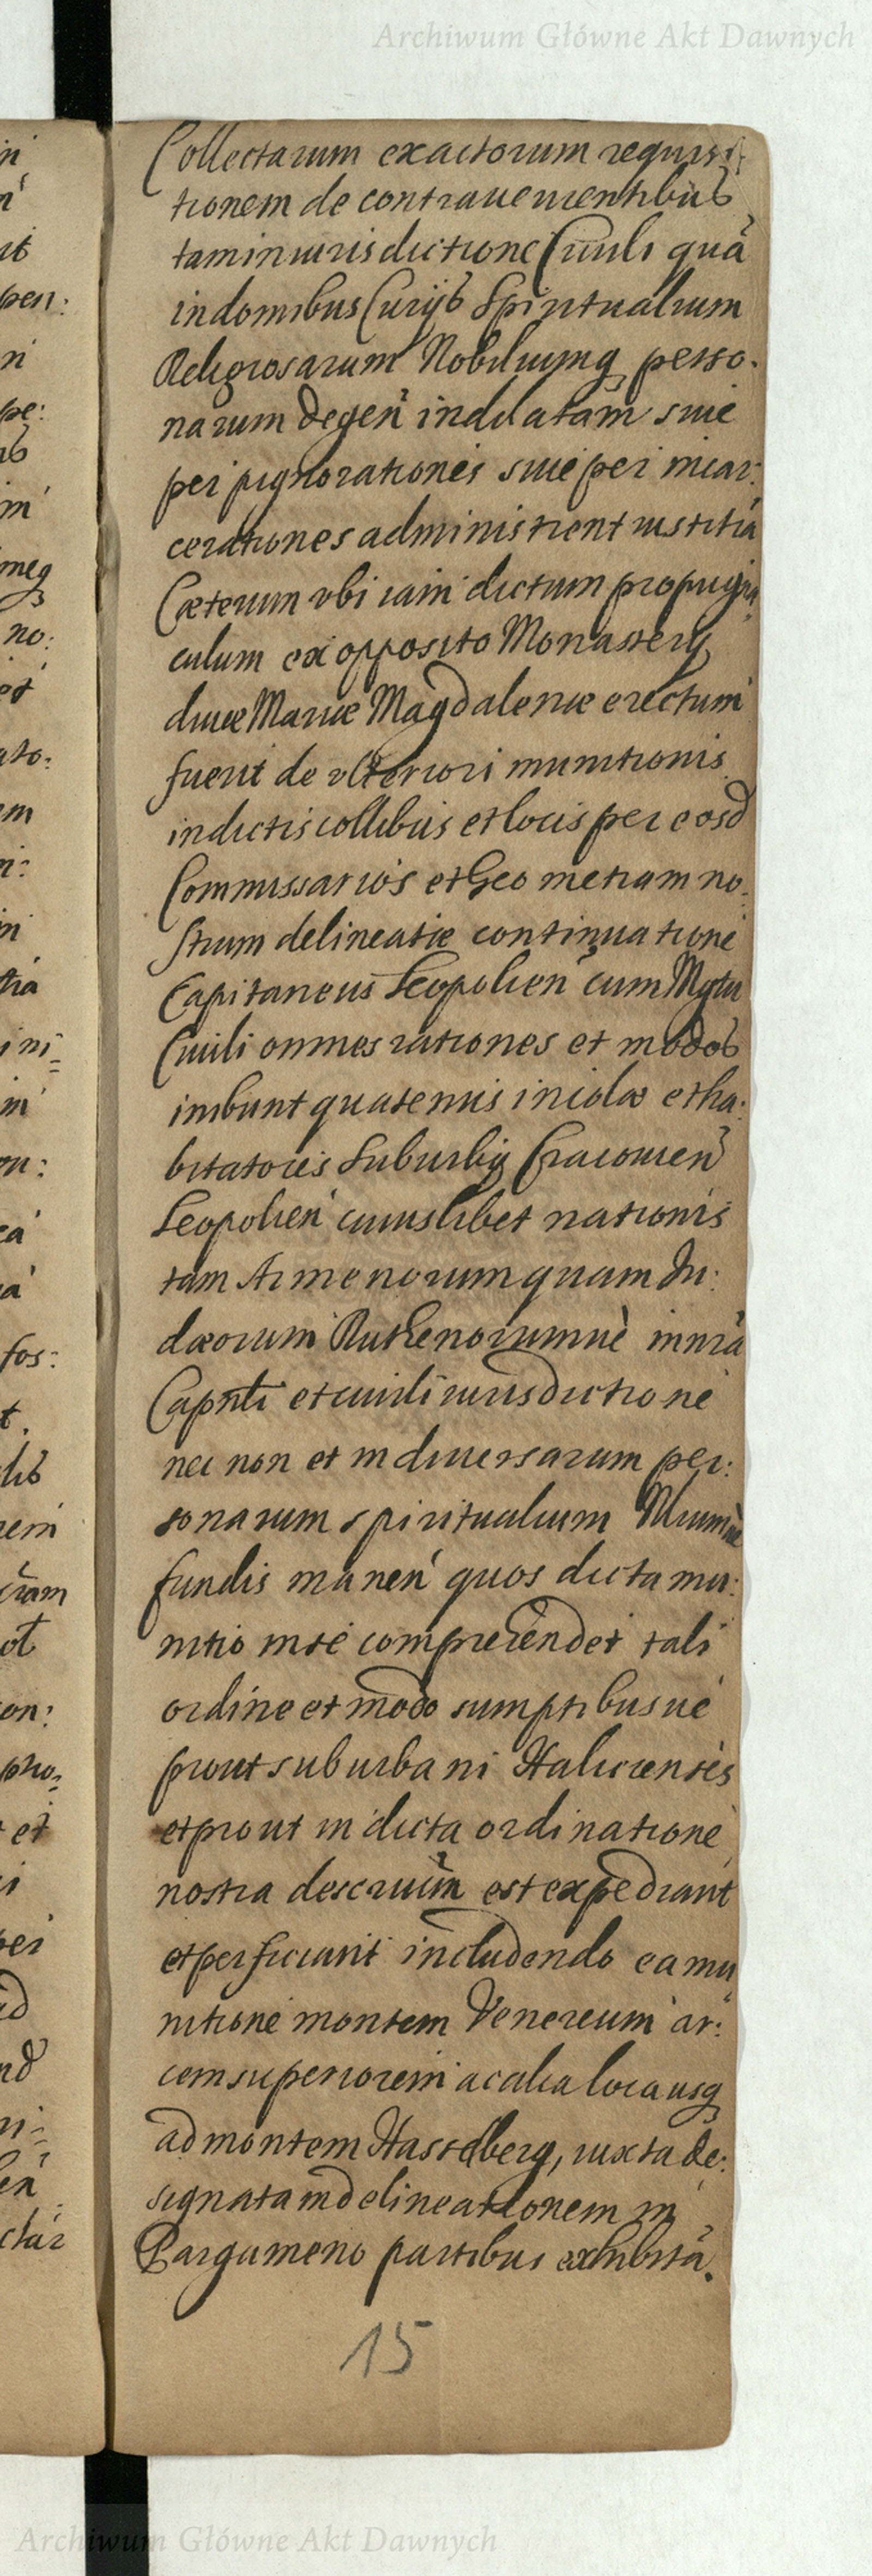 Archiwum Główne Akt Dawnych
Collectarum exactorum requisi
tionem de contrauenientibus
tam in iurisdictione Ciuili quã
in domibus Curijs Spiritualium
Religiosarum Nobiliumq perso.
narum degeñ indilatam siue
per pignorationes siue per incar:
cerationes administrent iustitiã
Cæterum vbi iam dictum propugna
culum ex opposito Monasterij
diuæ Mariæ Magdalenæ erectum
fuerit de vlteriori munitionis
in dictis collibus et locis per eosd
Commissarios et Geometram no:
strum delineatæ continuatione
Capitaneus Leopolieñ cum Mgtu
Ciuili omnes rationes et modos
inibunt quatenus incolæ et ha:
bitatores Suburbij Cracouieñ
Leopolieñ cuiuslibet nationis
tam Armenorum quam Iu:
dæorum Ruthenorumuè in iurã
Capnli et ciuili iurisdictione
nec non et in diuersarum per:
sonarum spiritualium
fundis maneñ quos dicta mu:
nitio in se comprehendet tali
ordine et modo sumptibusue
prout suburbani Halicienses
et prout in dicta ordinatione
nostra descriptũm est expediant
et perficiant includendo ea mu
nitione montem Venereum ar:
cem superiorem ac alia loca usq
ad montem Hasselberg, iuxta de:
signatam delineationem in
Pargameno partibus exhibitã.
15
Archiwum Główne Akt Dawnych